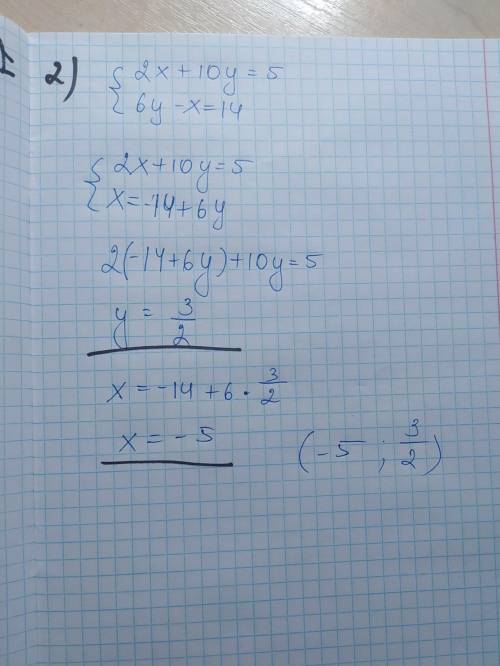 2) { 2x + 10y = 5
6y - x = 14
{ 2x + 10y = 5
x = -14 + 6y
2(-14 + 6y) + 10y = 5
y = 3/2
x = -14 + 6 · 3/2
x = -5 (-5 ; 3/2)